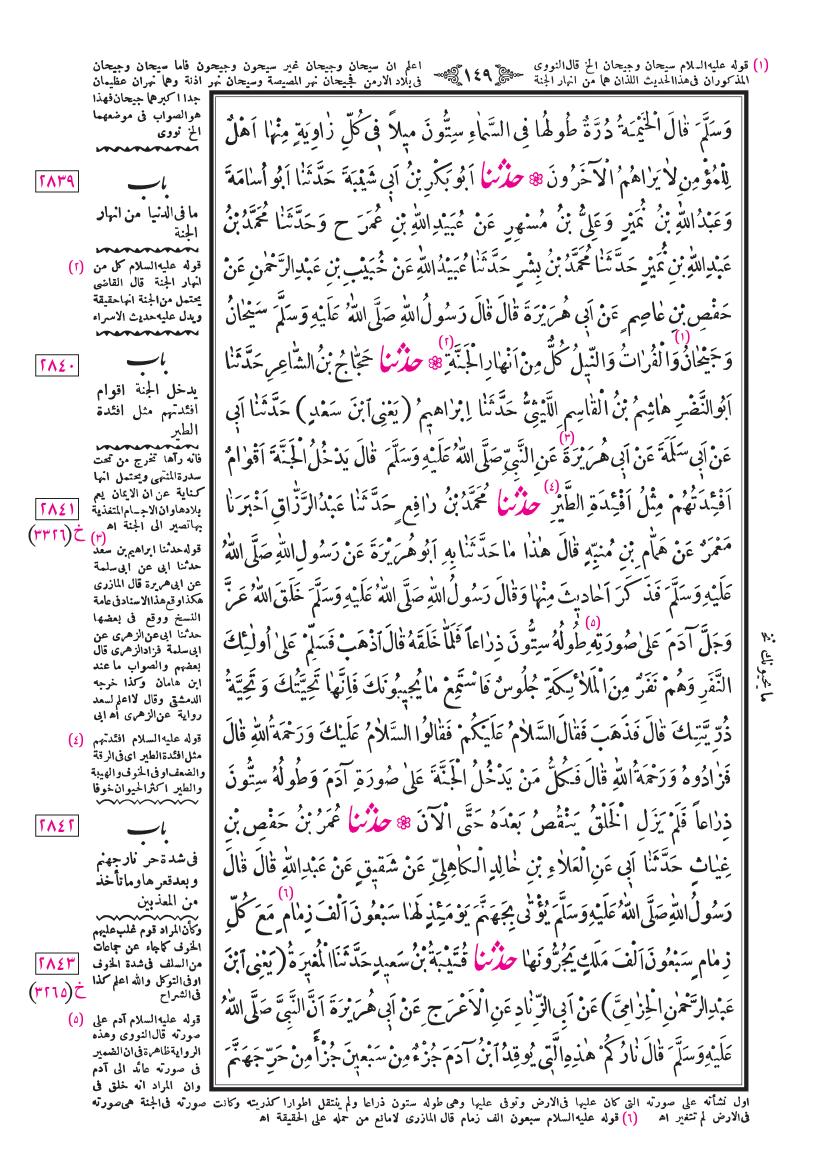 (١) قوله عليه السلام سيحان وجيحان الخ قال النووى
المذكوران فى هذا الحديث اللذان هما من انهار الجنة
١٤٩
اعلم ان سيحان وجيحان غير سيحون وجيحون فاما سيحان وجيحان
فى بلاد الارمن فجيحان نهر المصيصة وسيحان نهر اذنة وهما نهران عظيمان
جدا اكبرهما جيحان فهذا
هو الصواب فى موضعهما
الخ نووى
وَسَلَّمَ قَالَ الْخَيْمَةُ دُرَّةٌ طُولُهَا فِى السَّمَاءِ سِتُّونَ مِيلاً فِى كُلِّ زَاوِيَةٍ مِنْهَا اَهْلٌ
لِلْمُؤْمِنِ لاَ يَرَاهُمُ الْآخَرُونَ ۞ حدثنا اَبُو بَكْرِ بْنُ اَبِى شَيْبَةَ حَدَّثَنَا اَبُو اُسَامَةَ
وَعَبْدُ اللهِ بْنُ نُمَيْرٍ وَعَلِىُّ بْنُ مُسْهِرٍ عَنْ عُبَيْدِ اللهِ بْنِ عُمَرَ ح وَحَدَّثَنَا مُحَمَّدُ بْنُ
عَبْدِ اللهِ بْنِ نُمَيْرٍ حَدَّثَنَا مُحَمَّدُ بْنُ بِشْرٍ حَدَّثَنَا عُبَيْدُ اللهِ عَنْ خُبَيْبِ بْنِ عَبْدِ الرَّحْمٰنِ عَنْ
حَفْصِ بْنِ عَاصِمٍ عَنْ اَبِى هُرَيْرَةَ قَالَ قَالَ رَسُولُ اللهِ صَلَّى اللهُ عَلَيْهِ وَسَلَّمَ سَيْحَانُ
وَجَيْحَانُ (١) وَالْفُرَاتُ وَالنِّيلُ كُلٌّ مِنْ اَنْهَارِ الْجَنَّةِ (٢) ۞ حدثنا حَجَّاجُ بْنُ الشَّاعِرِ حَدَّثَنَا
اَبُو النَّضْرِ هَاشِمُ بْنُ الْقَاسِمِ اللَّيْثِىُّ حَدَّثَنَا اِبْرَاهِيمُ (يَعْنِى ابْنَ سَعْدٍ) حَدَّثَنَا اَبِى
عَنْ اَبِى سَلَمَةَ عَنْ اَبِى هُرَيْرَةَ (٣) عَنِ النَّبِىِّ صَلَّى اللهُ عَلَيْهِ وَسَلَّمَ قَالَ يَدْخُلُ الْجَنَّةَ اَقْوَامٌ
اَفْئِدَتُهُمْ مِثْلُ اَفْئِدَةِ الطَّيْرِ (٤) حدثنا مُحَمَّدُ بْنُ رَافِعٍ حَدَّثَنَا عَبْدُ الرَّزَّاقِ اَخْبَرَنَا
مَعْمَرٌ عَنْ هَمَّامِ بْنِ مُنَبِّهٍ قَالَ هٰذَا مَا حَدَّثَنَا بِهِ اَبُو هُرَيْرَةَ عَنْ رَسُولِ اللهِ صَلَّى اللهُ
عَلَيْهِ وَسَلَّمَ فَذَكَرَ اَحَادِيثَ مِنْهَا وَقَالَ رَسُولُ اللهِ صَلَّى اللهُ عَلَيْهِ وَسَلَّمَ خَلَقَ اللهُ عَزَّ
وَجَلَّ آدَمَ عَلىٰ صُورَتِهِ (٥) طُولُهُ سِتُّونَ ذِرَاعاً فَلَمَّا خَلَقَهُ قَالَ اذْهَبْ فَسَلِّمْ عَلىٰ اُولٰئِكَ
النَّفَرِ وَهُمْ نَفَرٌ مِنَ الْمَلاَئِكَةِ جُلُوسٌ فَاسْتَمِعْ مَا يُجِيبُونَكَ فَاِنَّهَا تَحِيَّتُكَ وَتَحِيَّةُ
ذُرِّيَّتِكَ قَالَ فَذَهَبَ فَقَالَ السَّلاَمُ عَلَيْكُمْ فَقَالُوا السَّلاَمُ عَلَيْكَ وَرَحْمَةُ اللهِ قَالَ
فَزَادُوهُ وَرَحْمَةُ اللهِ قَالَ فَكُلُّ مَنْ يَدْخُلُ الْجَنَّةَ عَلىٰ صُورَةِ آدَمَ وَطُولُهُ سِتُّونَ
ذِرَاعاً فَلَمْ يَزَلِ الْخَلْقُ يَنْقُصُ بَعْدَهُ حَتَّى الْآنَ ۞ حدثنا عُمَرُ بْنُ حَفْصِ بْنِ
غِيَاثٍ حَدَّثَنَا اَبِى عَنِ الْعَلاَءِ بْنِ خَالِدٍ الْكَاهِلِىِّ عَنْ شَقِيقٍ عَنْ عَبْدِ اللهِ قَالَ قَالَ
رَسُولُ اللهِ صَلَّى اللهُ عَلَيْهِ وَسَلَّمَ يُؤْتٰى بِجَهَنَّمَ يَوْمَئِذٍ لَهَا سَبْعُونَ اَلْفَ زِمَامٍ (٦) مَعَ كُلِّ
زِمَامٍ سَبْعُونَ اَلْفَ مَلَكٍ يَجُرُّونَهَا حدثنا قُتَيْبَةُ بْنُ سَعِيدٍ حَدَّثَنَا الْمُغِيرَةُ (يَعْنِى ابْنَ
عَبْدِ الرَّحْمٰنِ الْحِزَامِىَّ) عَنْ اَبِى الزِّنَادِ عَنِ الْاَعْرَجِ عَنْ اَبِى هُرَيْرَةَ اَنَّ النَّبِىَّ صَلَّى اللهُ
عَلَيْهِ وَسَلَّمَ قَالَ نَارُكُمْ هٰذِهِ الَّتِى يُوقِدُ ابْنُ آدَمَ جُزْءٌ مِنْ سَبْعِينَ جُزْأً مِنْ حَرِّ جَهَنَّمَ
ما يحيونك نخ
٢٨٣٩
باب
ما فى الدنيا من انهار
الجنة
(٢) قوله عليه السلام كل من
انهار الجنة قال القاضى
يحتمل من الجنة انها حقيقة
ويدل عليه حديث الاسراء
٢٨٤٠
باب
يدخل الجنة اقوام
افئدتهم مثل افئدة
الطير
فانه رآها تخرج من تحت
سدرة المنتهى ويحتمل انها
كناية عن ان الايمان يعم
بلادها وان الاجسام المتغذية
بها تصير الى الجنة اه
٢٨٤١
خ (٣٣٢٦)
(٣)
قوله حدثنا ابراهيم بن سعد
حدثنا ابى عن ابى سلمة
عن ابى هريرة قال المازرى
هكذا وقع هذا الاسناد فى عامة
النسخ ووقع فى بعضها
حدثنا ابى عن الزهرى عن
ابى سلمة فزاد الزهرى قال
بعضهم والصواب ما عند
ابن هامان وكذا خرجه
الدمشقى وقال لا اعلم لسعد
رواية عن الزهرى اه ابى
(٤) قوله عليه السلام افئدتهم
مثل افئدة الطير اى فى الرقة
والضعف او فى الخوف والهيبة
والطير اكثر الحيوان خوفا
٢٨٤٢
باب
فى شدة حر نار جهنم
وبعد قعرها وما تأخذ
من المعذبين
وكأن المراد قوم غلب عليهم
الخوف كما جاء عن جماعات
من السلف فى شدة الخوف
او فى التوكل والله اعلم كذا
فى الشراح
٢٨٤٣
خ (٣٢٦٥)
(٥) قوله عليه السلام آدم على
صورته قال النووى وهذه
الرواية ظاهرة فى ان الضمير
فى صورته عائد الى آدم
وان المراد انه خلق فى
اول نشأته على صورته التى كان عليها فى الارض وتوفى عليها وهى طوله ستون ذراعا ولم ينتقل اطوارا كذريته وكانت صورته فى الجنة هى صورته
فى الارض لم تتغير اه (٦) قوله عليه السلام سبعون الف زمام قال المازرى لا مانع من حمله على الحقيقة اه